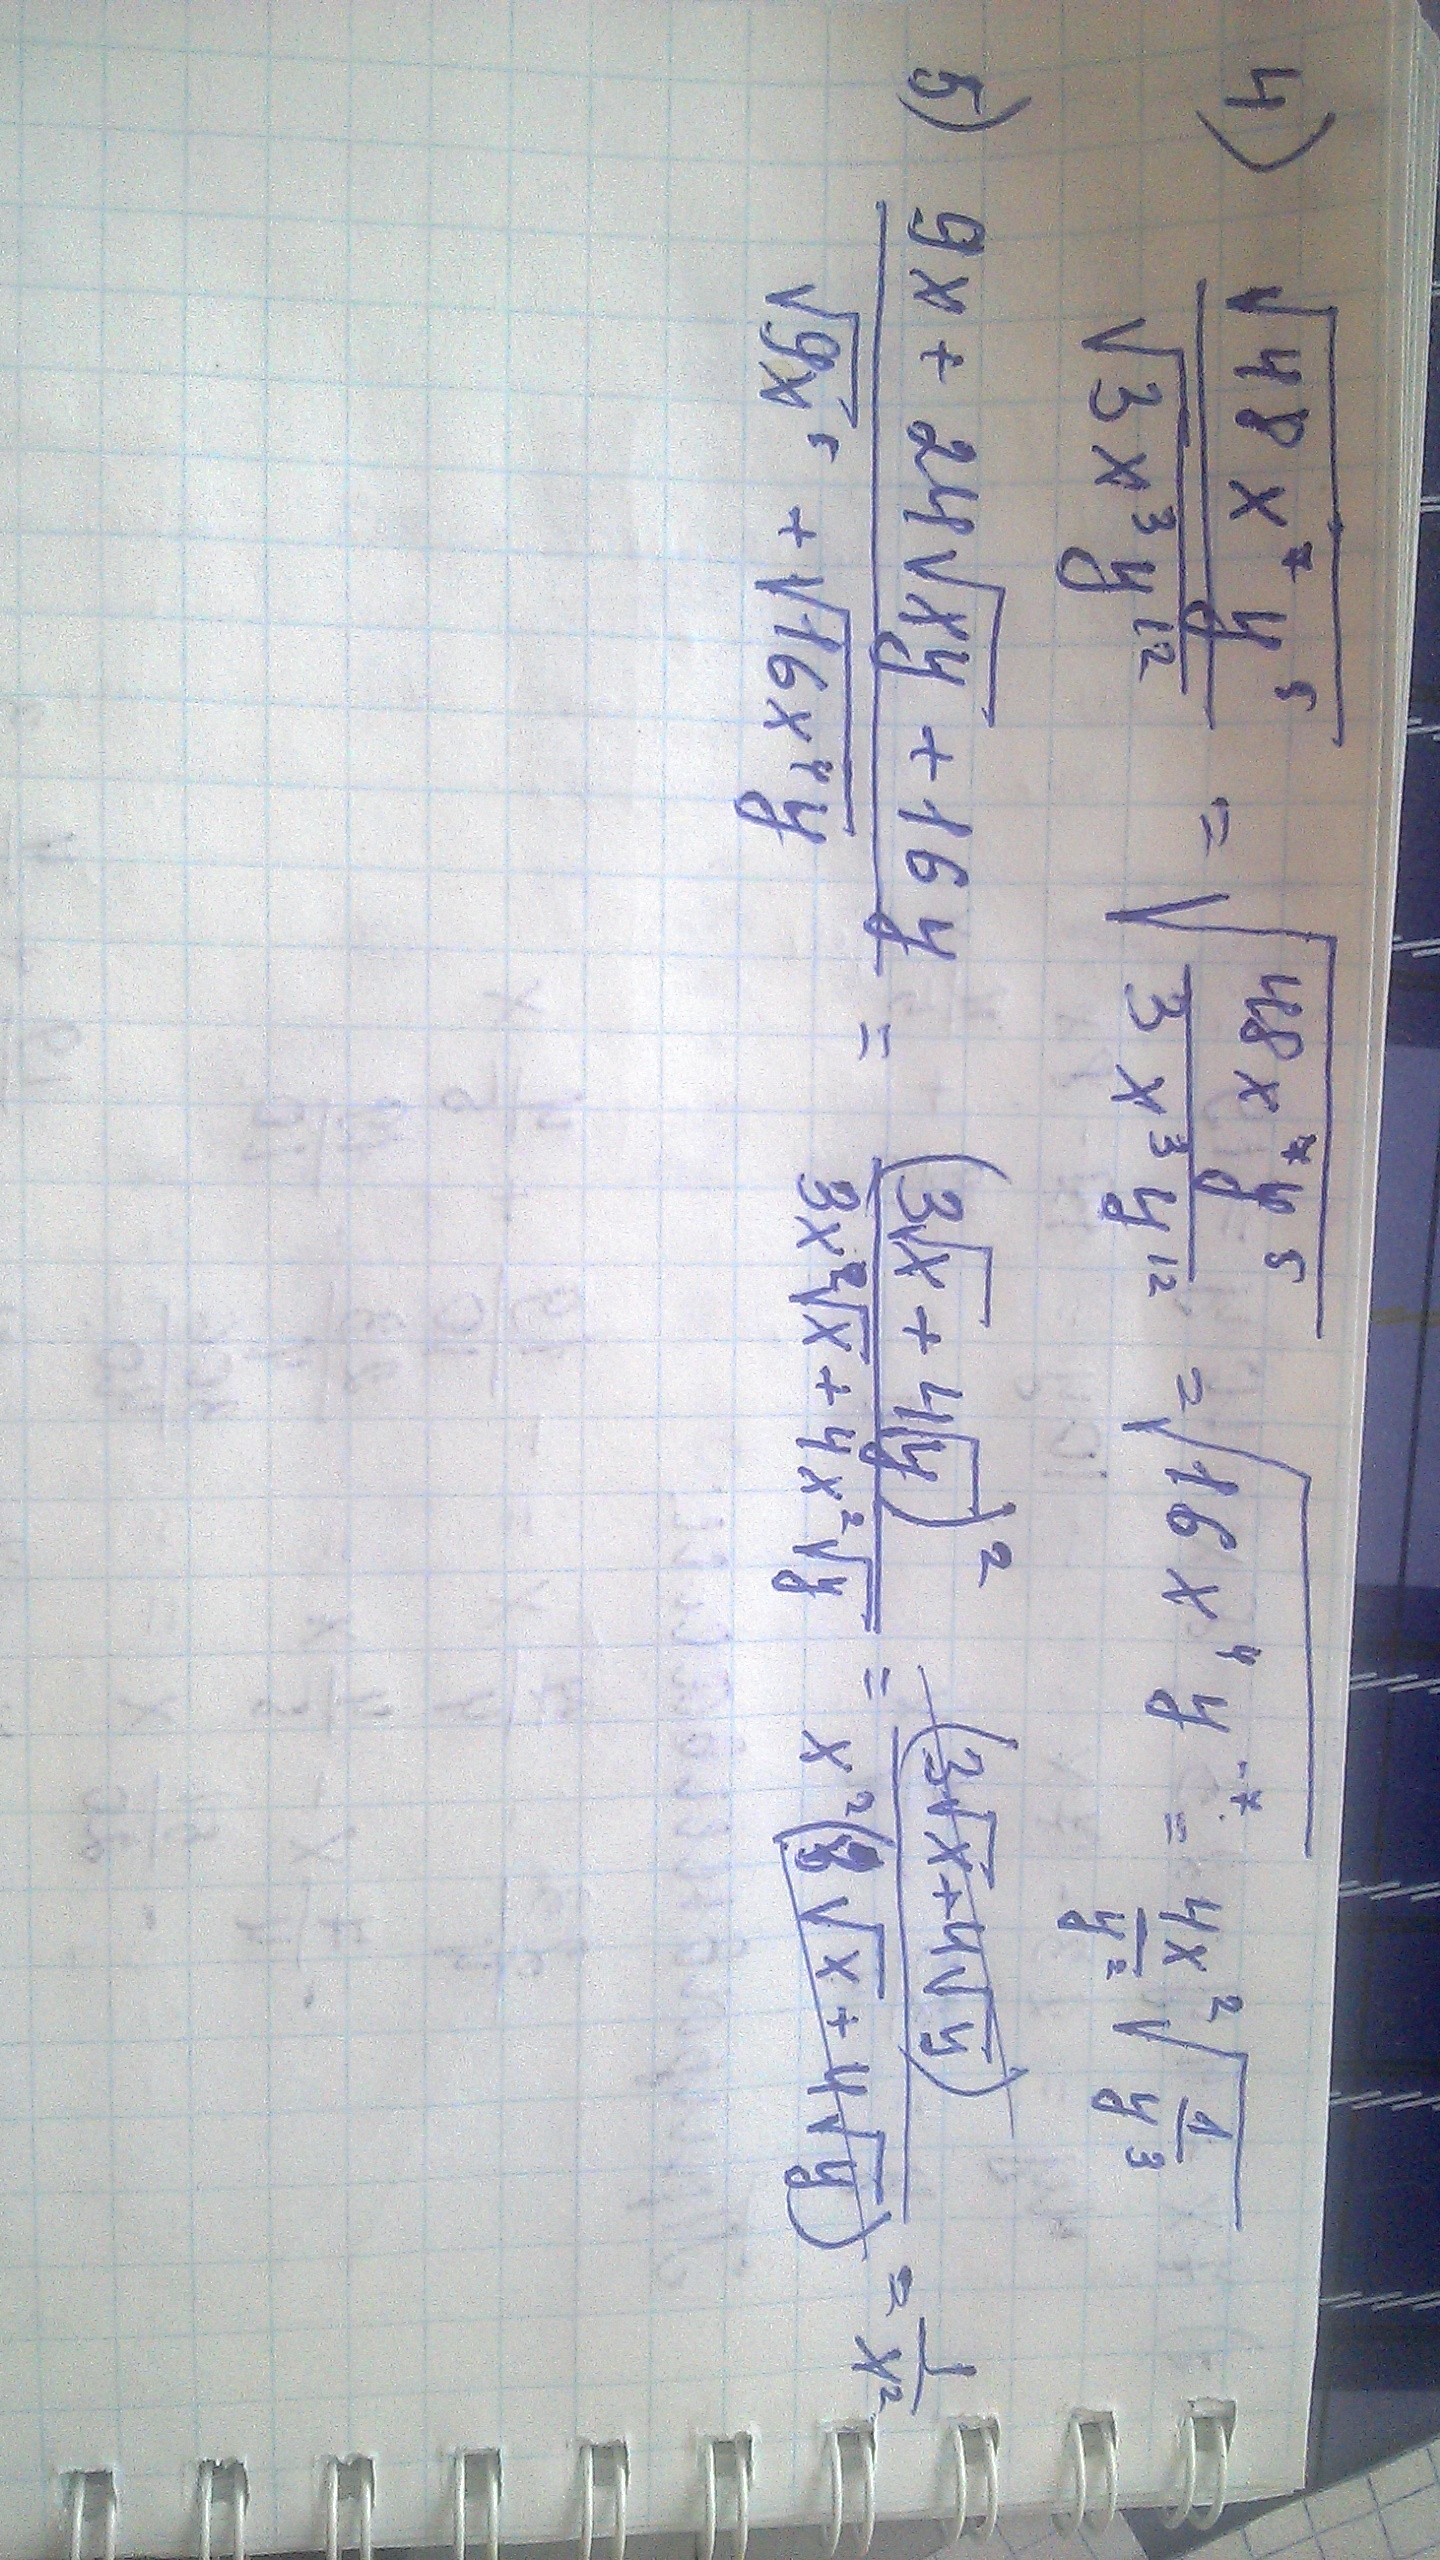 4) √(48x⁷y⁵) / √(3x³y¹²) = √(48x⁷y⁵ / 3x³y¹²) = √(16x⁴y⁻⁷) = 4x²/y² √(1/y³)
5) (9x + 24√(xy) + 16y) / (√(9x⁵) + √(16x⁴y)) = (3√x + 4√y)² / (3x²√x + 4x²√y) = (3√x + 4√y) / (x²(3√x + 4√y)) = 1/x²